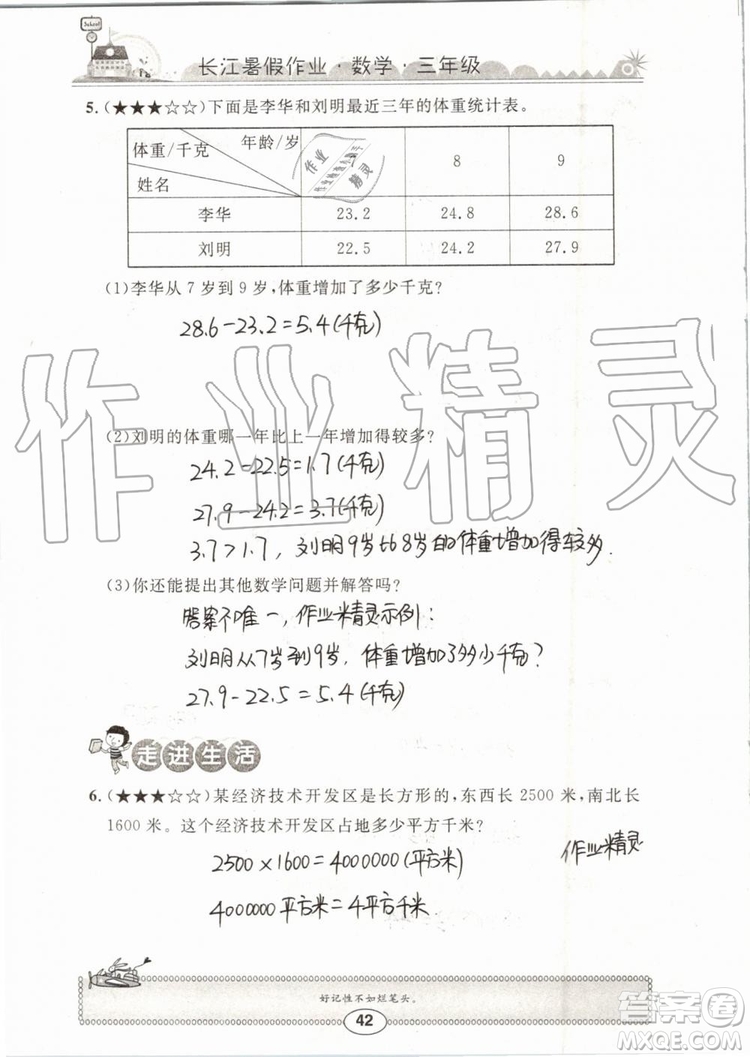 School
长江暑假作业·数学·三年级
5.(★★★☆☆)下面是李华和刘明最近三年的体重统计表。
年龄/岁
体重/千克
姓名
8
9
作业
精灵
李华 23.2 24.8 28.6
刘明 22.5 24.2 27.9
(1)李华从7岁到9岁,体重增加了多少千克?
28.6-23.2=5.4(千克)
作业精灵
(2)刘明的体重哪一年比上一年增加得较多?
24.2-22.5=1.7(千克)
27.9-24.2=3.7(千克)
3.7>1.7,刘明9岁比8岁的体重增加得较多.
(3)你还能提出其他数学问题并解答吗?
答案不唯一,作业精灵示例:
刘明从7岁到9岁,体重增加了多少千克?
27.9-22.5=5.4(千克)
走进生活
6.(★★★☆☆)某经济技术开发区是长方形的,东西长2500米,南北长
1600米。这个经济技术开发区占地多少平方千米?
2500×1600=4000000(平方米)
作业精灵
4000000平方米=4平方千米
好记性不如烂笔头。
42
答案圈
MXQE.COM